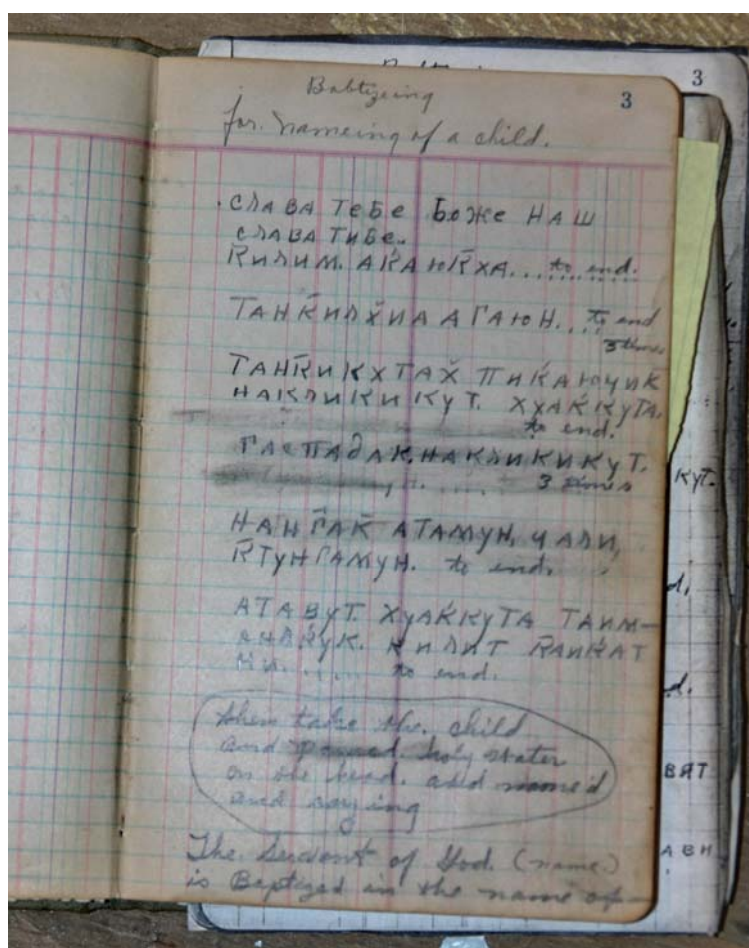 3
Babtizeing
3
for. nameing of a child.
СЛАВА ТеБе БоЖе НАШ
СЛАВА ТИБе.
К̄ИЛИМ. АК̄А Ю К̄ХА.... to end.
ТАНК̄ИЛХ̆ИА АГ̄АЮН... to end
3 times
ТАНК̄ИКХТАХ̆ ПИК̄АЮЧИК̄
НАКЛИКИ КУТ. ХУАК̄КУТА.
to end.
ГАСПАДАК. НАКЛИКИКУТ.
3 times
КУТ.
НАНГ̄АК̄ АТАМУН. ЧАЛИ,
К̄ТУНГАМУН. to end.
АТАВУТ. ХУАК̄КУТА ТАИМ—
КИЛИТ К̄АИК̄АТ
to end.
then take the. child
and poured. holy water
on the head. and name'd
and saying
ВЯТ
АВН
The. Servant of God. (name)
is Baptized in the name of—